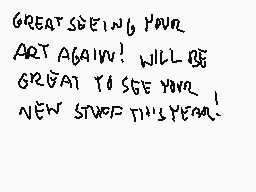 GREAT SEEING YOUR
ART AGAIN! WILL BE
GREAT TO SEE YOUR
NEW STUFF THIS YEAR!